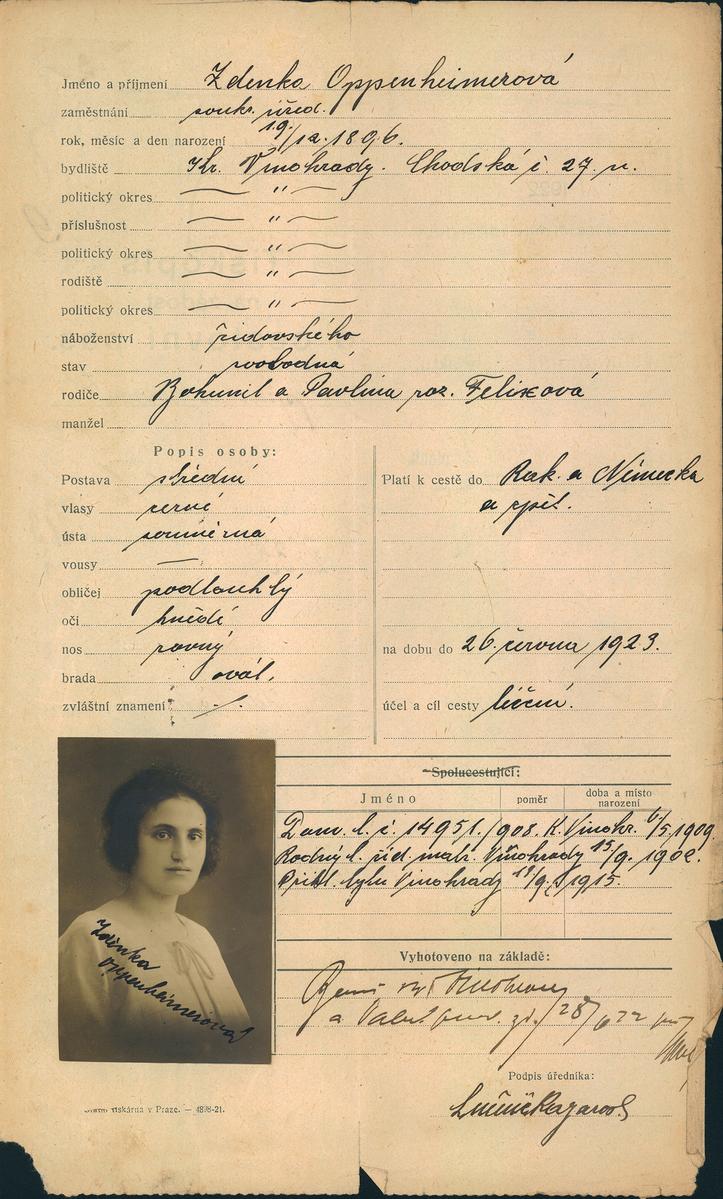 Jméno a příjmení Zdenka Oppenheimerová
zaměstnání soukr. úřed.
rok, měsíc a den narození 19/12. 1896.
bydliště Kr. Vinohrady. Chodská č. 27. n.
politický okres — " —
příslušnost — " —
politický okres — " —
rodiště — " —
politický okres — " —
náboženství židovského
stav svobodná
rodiče Bohumil a Pavlína roz. Felixová
manžel
Popis osoby:
Postava střední
vlasy černé
ústa souměrná
vousy —
obličej podlouhlý
oči hnědé
nos rovný
brada ovál.
zvláštní znamení ·/.
Platí k cestě do Rak. a Německa
a zpět.
na dobu do 26. června 1923.
účel a cíl cesty léčení.
Spolucestující:
Jméno poměr doba a místo narození
Dom. l. č. 14951/908. K. Vinohr. 6/5. 1909
Rodný l. žid. matr. Vinohrady 15/9. 1902.
Přihl. Vinohrady 1915.
Vyhotoveno na základě:
a 28/6 22
Podpis úředníka:
Zdenka
Oppenheimerová
tiskárna v Praze. — 4898-21.